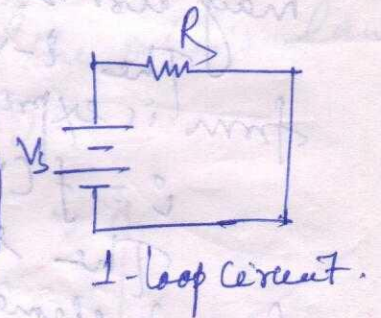 R
Vs
1-loop circuit.